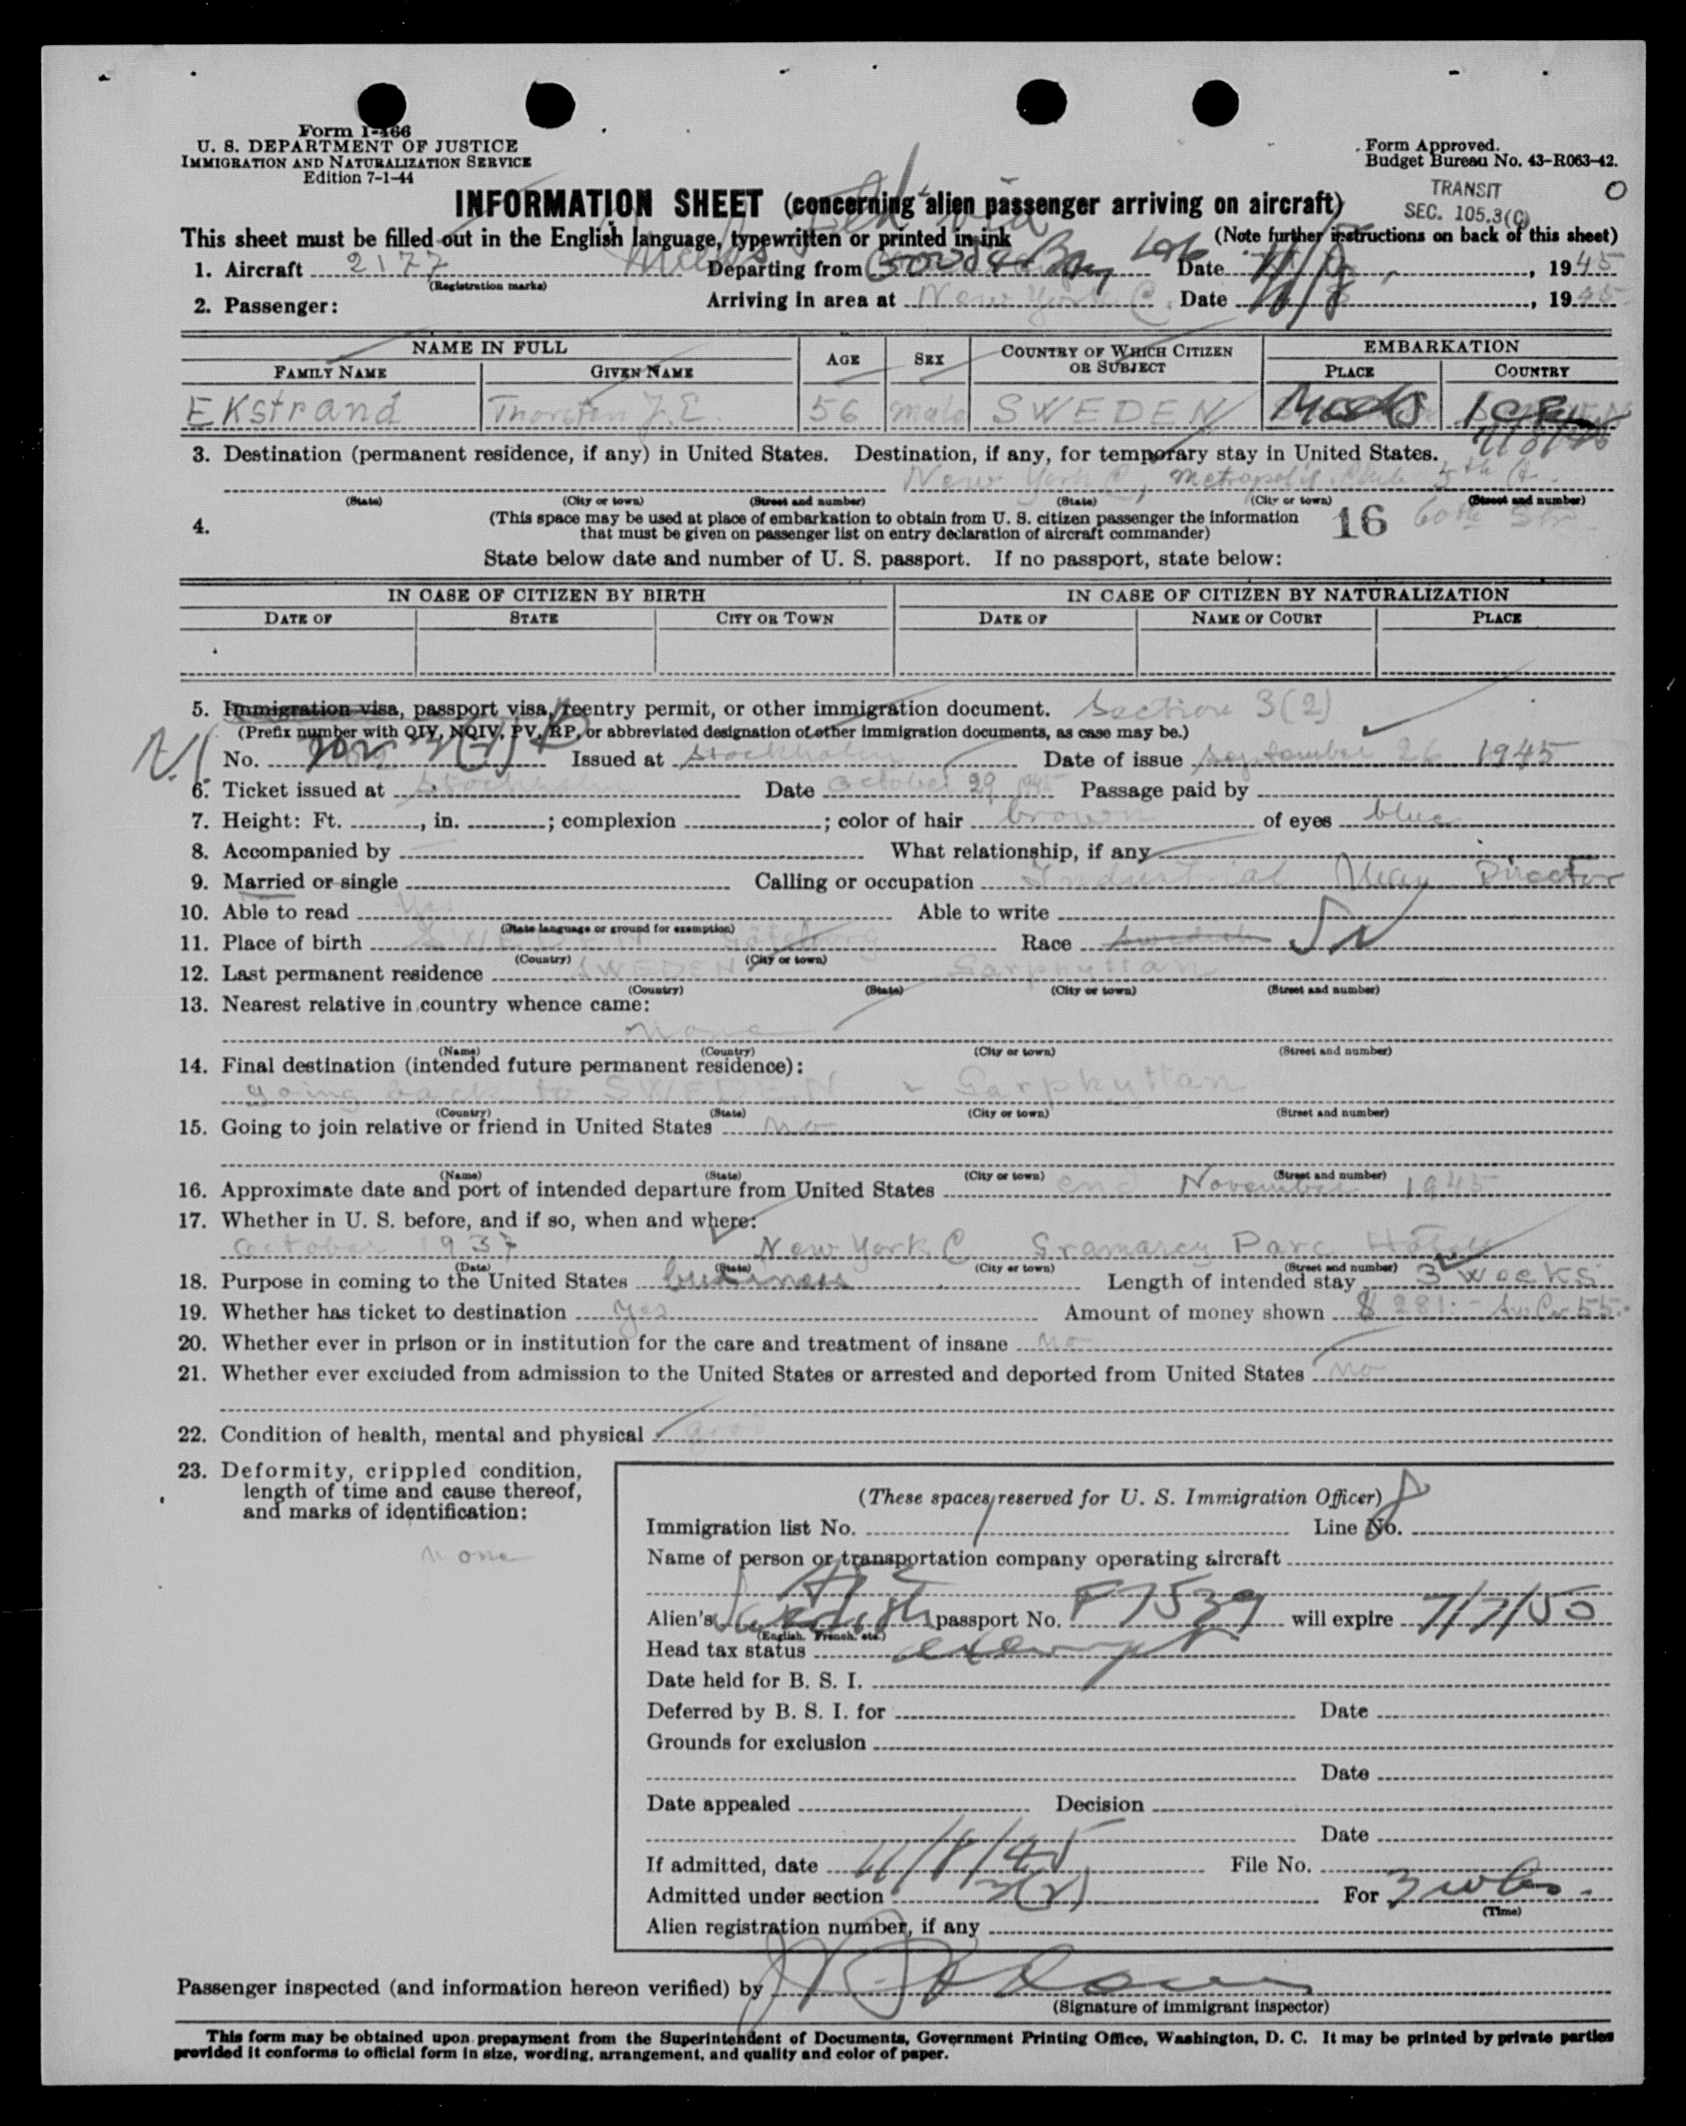 Form I-466
U. S. DEPARTMENT OF JUSTICE
IMMIGRATION AND NATURALIZATION SERVICE
Edition 7-1-44
Form Approved.
Budget Bureau No. 43-R063-42.
TRANSIT
SEC. 105.3(C)
O
INFORMATION SHEET (concerning alien passenger arriving on aircraft)
This sheet must be filled out in the English language, typewritten or printed in ink (Note further instructions on back of this sheet)
1. Aircraft 2177 Departing from Date , 1945
(Registration marks)
2. Passenger: Arriving in area at New York C. Date 11/8 , 1945
NAME IN FULL AGE SEX COUNTRY OF WHICH CITIZEN OR SUBJECT EMBARKATION
FAMILY NAME GIVEN NAME PLACE COUNTRY
EKstrand Thorsten J.E. 56 male SWEDEN
3. Destination (permanent residence, if any) in United States. Destination, if any, for temporary stay in United States.
New York C, Metropolit. Club 5th
(State) (City or town) (Street and number) (State) (City or town) (Street and number)
4. (This space may be used at place of embarkation to obtain from U. S. citizen passenger the information 16 60th Str
that must be given on passenger list on entry declaration of aircraft commander)
State below date and number of U. S. passport. If no passport, state below:
IN CASE OF CITIZEN BY BIRTH IN CASE OF CITIZEN BY NATURALIZATION
DATE OF STATE CITY OR TOWN DATE OF NAME OF COURT PLACE
5. Immigration visa, passport visa, reentry permit, or other immigration document. Section 3(2)
(Prefix number with QIV, NQIV, PV, RP, or abbreviated designation of other immigration documents, as case may be.)
No. Issued at Stockholm Date of issue September 26 1945
6. Ticket issued at Stockholm Date October 29 1945 Passage paid by
7. Height: Ft. , in. ; complexion ; color of hair brown of eyes blue
8. Accompanied by What relationship, if any
9. Married or single Calling or occupation Industrial Director
10. Able to read Yes Able to write
(State language or ground for exemption)
11. Place of birth SWEDEN Göteborg Race Swedish
(Country) (City or town)
12. Last permanent residence SWEDEN Garphyttan
(Country) (State) (City or town) (Street and number)
13. Nearest relative in country whence came:
None
(Name) (Country) (City or town) (Street and number)
14. Final destination (intended future permanent residence):
going back to SWEDEN - Garphyttan
(Country) (State) (City or town) (Street and number)
15. Going to join relative or friend in United States no
(Name) (State) (City or town) (Street and number)
16. Approximate date and port of intended departure from United States end November 1945
17. Whether in U. S. before, and if so, when and where:
October 1937 New York C Gramarcy Parc Hotel
(Date) (State) (City or town) (Street and number)
18. Purpose in coming to the United States business Length of intended stay 3 weeks
19. Whether has ticket to destination yes Amount of money shown $ 281:-
20. Whether ever in prison or in institution for the care and treatment of insane no
21. Whether ever excluded from admission to the United States or arrested and deported from United States no
22. Condition of health, mental and physical good
23. Deformity, crippled condition,
length of time and cause thereof,
and marks of identification:
none
(These spaces reserved for U. S. Immigration Officer)
Immigration list No. 1 Line No. 8
Name of person or transportation company operating aircraft
Alien's Swedish passport No. F7539 will expire 7/7/50
(English, French, etc.)
Head tax status exempt
Date held for B. S. I.
Deferred by B. S. I. for Date
Grounds for exclusion
Date
Date appealed Decision
Date
If admitted, date 11/8/45 File No.
Admitted under section 3(2) For 3 wks.
(Time)
Alien registration number, if any
Passenger inspected (and information hereon verified) by
(Signature of immigrant inspector)
This form may be obtained upon prepayment from the Superintendent of Documents, Government Printing Office, Washington, D. C. It may be printed by private parties
provided it conforms to official form in size, wording, arrangement, and quality and color of paper.